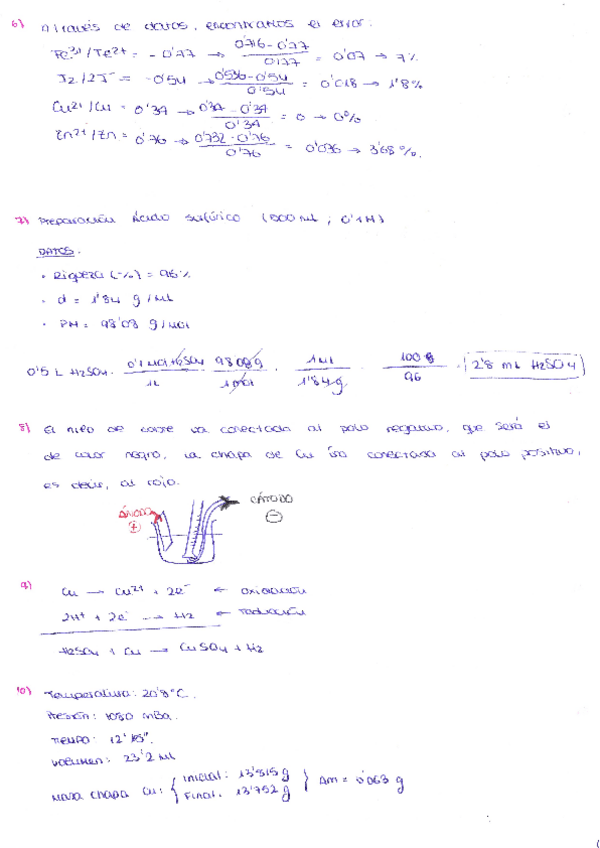 6) A través de datos, encontramos el error:
Fe³⁺/Fe²⁺ = -0'77 → 0'716-0'77 / 0'77 = 0'07 → 7%
I2/2I⁻ = -0'54 → 0'536-0'54 / 0'54 = 0'018 → 1'8%
Cu²⁺/Cu = 0'34 → 0'34-0'34 / 0'34 = 0 → 0%
Zn²⁺/Zn = 0'76 → 0'732-0'76 / 0'76 = 0'036 → 3'68%.
7) Preparación Ácido sulfúrico (500 mL; 0'1M)
DATOS.
· Riqueza (%) = 96%
· d = 1'84 g/mL
· PM = 98'08 g/mol
0'5 L H2SO4 · 0'1 mol H2SO4 / 1L · 98'08 g / 1 mol · 1 mL / 1'84 g · 100 g / 96 = 2'8 mL H2SO4
8) El hilo de cobre va conectado al polo negativo, que será el
de color negro, la chapa de Cu irá conectada al polo positivo,
es decir, al rojo.
ÁNODO (+) CÁTODO (-)
9) Cu → Cu²⁺ + 2e⁻ ← oxidación
2H⁺ + 2e⁻ → H2 ← reducción
H2SO4 + Cu → CuSO4 + H2
10) Temperatura: 20'8°C.
Presión: 1030 mBa.
Tiempo: 12'
Volumen: 23'2 mL
Masa chapa Cu: { inicial: 13'815 g
Final: 13'752 g } Δm = 0'063 g